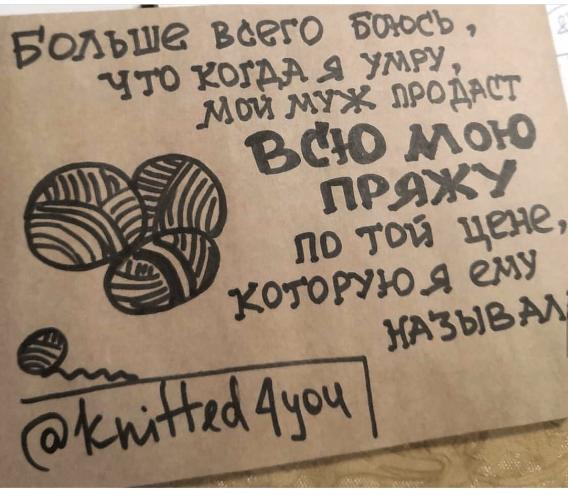 Больше всего боюсь,
что когда я умру,
мой муж продаст
ВСЮ МОЮ
ПРЯЖУ
по той цене,
которую я ему
называла
@knitted4you